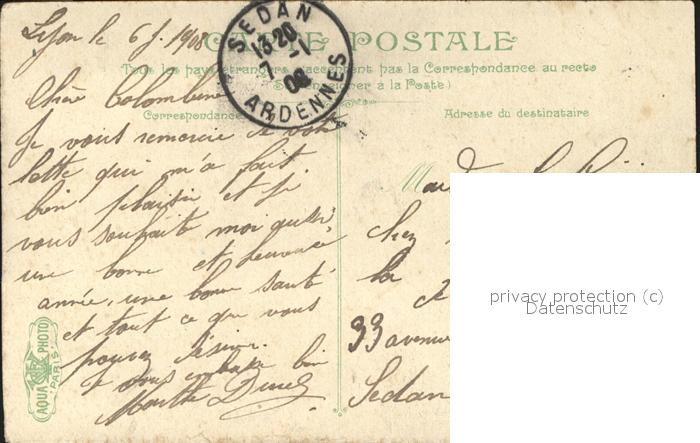 Lyon le 6 J. 1908
CARTE POSTALE
SEDAN
13-20
7 -1
08
ARDENNES
Tous les pays étrangers n'acceptent pas la Correspondance au recto
(Se renseigner à la Poste)
Correspondance
Adresse du destinataire
Chère Colombine
Je vous remercie de votre
lettre qui m'a fait
bien plaisir et je
vous souhaite moi aussi
une bonne et heureuse
année, une bonne santé
et tout ce que vous
pouvez désirer.
Je vous embrasse bien
Marthe
chez
la
33 avenue
Sedan
AQUA PHOTO
PARIS
privacy protection (c)
Datenschutz